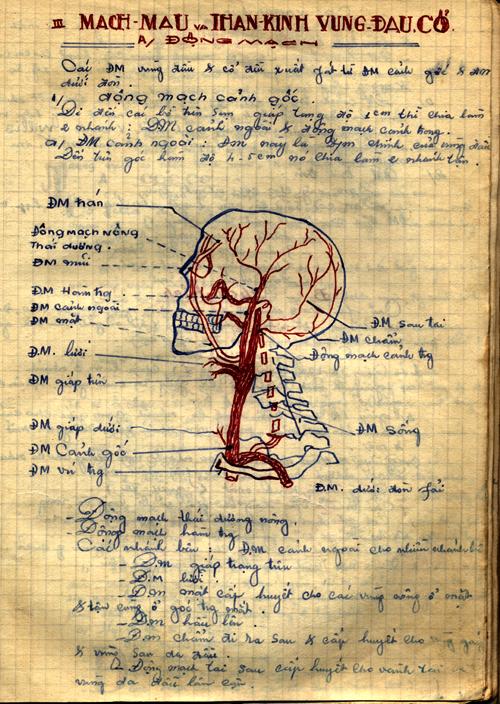 III MẠCH-MÁU VÀ THẦN-KINH VÙNG-ĐẦU.CỔ.
A/ ĐỘNG MẠCH
Các ĐM vùng đầu & cổ đều xuất phát từ ĐM cảnh gốc & ĐM
dưới đòn.
1/ động mạch cảnh gốc.
Đi đến các bờ trên sụn giáp trạng độ 1cm thì chia làm
2 nhánh: ĐM cảnh ngoài & động mạch cảnh trong.
a/ ĐM cảnh ngoài: ĐM này là ĐM chính của vùng đầu
Đến trên góc hàm độ 4-5cm nó chia làm 2 nhánh tận.
ĐM trán
Động mạch nông
Thái dương.
ĐM mũi
ĐM Hàm tg
ĐM cảnh ngoài
ĐM mặt
Đ.M. lưỡi
ĐM giáp trên
ĐM giáp dưới
ĐM Cảnh gốc
ĐM vú tg
ĐM sau tai
ĐM chẩm
Động mạch cảnh tg
ĐM sống
Đ.M. dưới đòn fải
- Động mạch thái dương nông.
- Động mạch hàm tg
Các nhánh bên: Đ.M cảnh ngoài cho nhiều nhánh bê
- Đ.M giáp trạng trên
- Đ.M lưỡi
- Đ.M mặt cấp huyết cho các vùng nông ở mặt
& tận cùng ở góc tg mắt.
- Đ.M hầu lên.
- Đ.M chẩm đi ra sau & cấp huyết cho vùng gáy
& vùng sau da đầu.
- Động mạch tai sau cấp huyết cho vành tai
vùng da đầu lân cận.